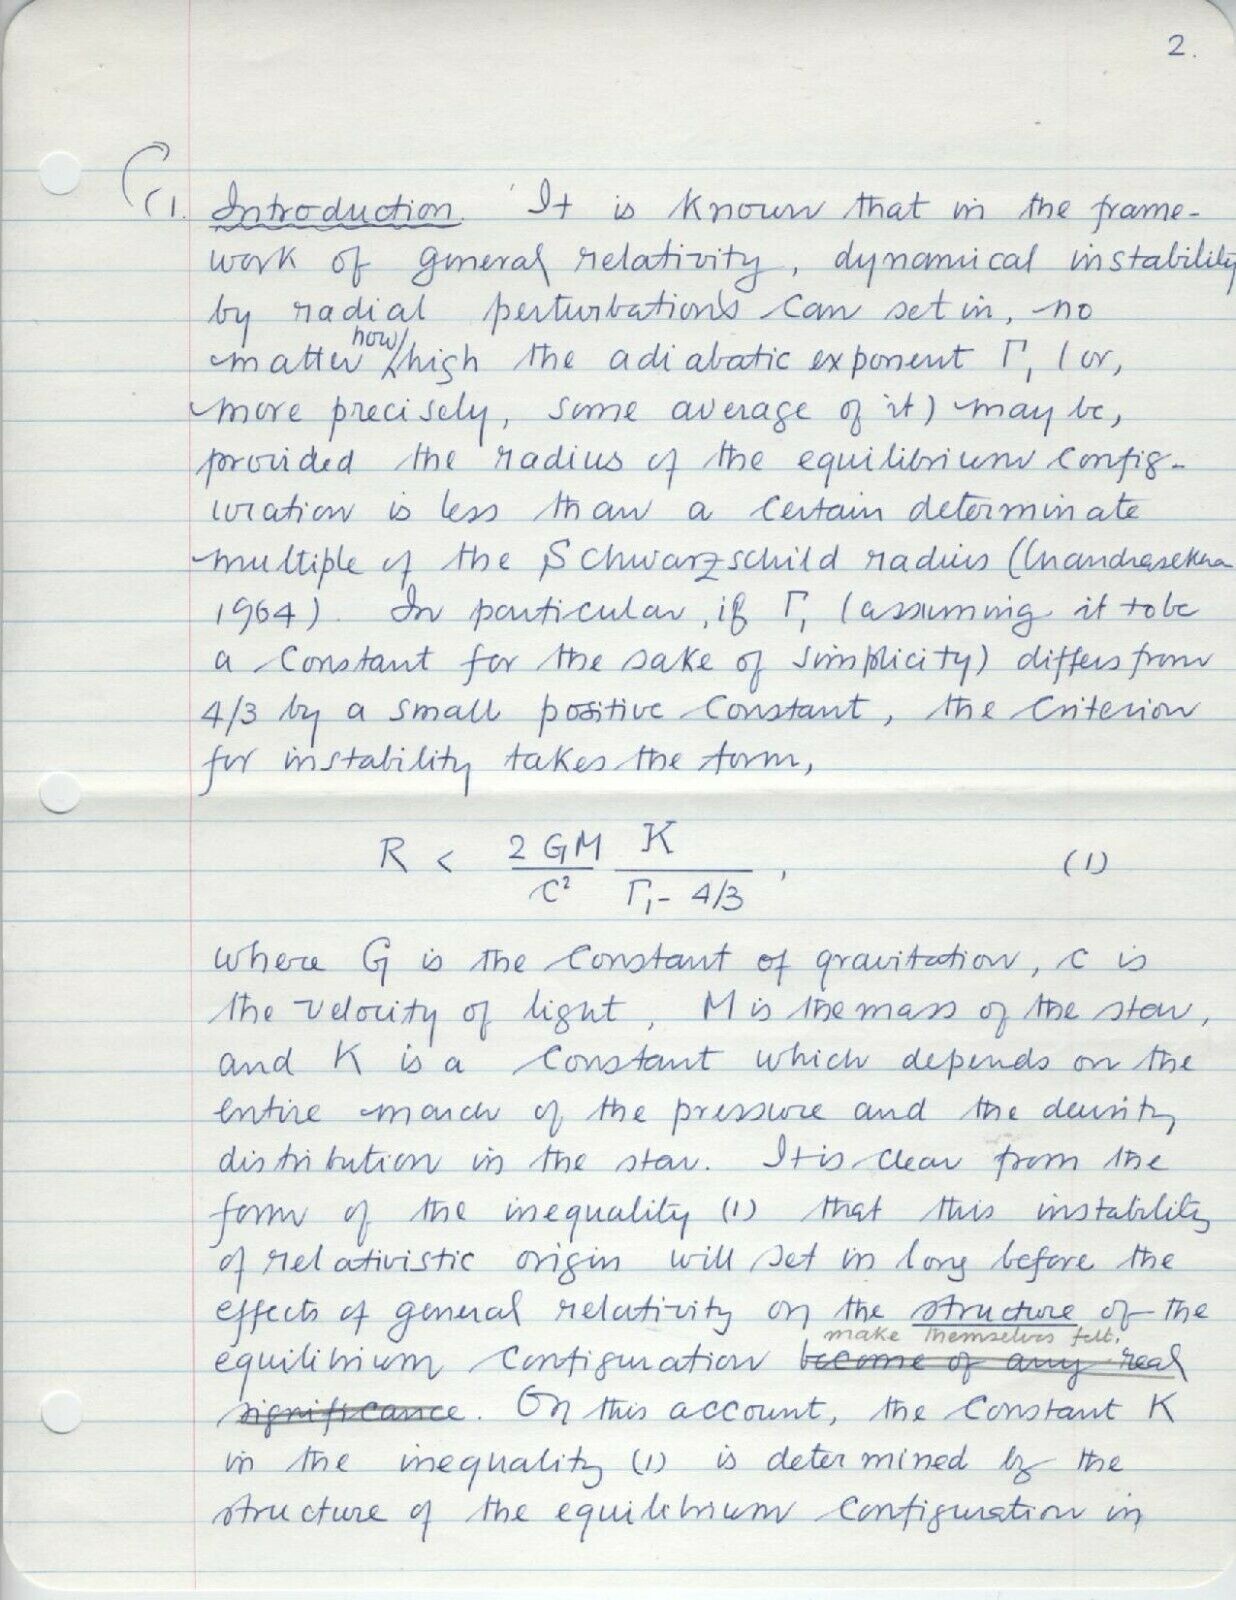 2.
(1. Introduction. It is known that in the frame-
work of general relativity, dynamical instability
by radial perturbations can set in, no
matter how high the adiabatic exponent Γ₁ (or,
more precisely, some average of it) may be,
provided the radius of the equilibrium config-
uration is less than a certain determinate
multiple of the Schwarzschild radius (Chandrasekhar
1964). In particular, if Γ₁ (assuming it to be
a constant for the sake of simplicity) differs from
4/3 by a small positive constant, the criterion
for instability takes the form,
R < 2GM/c² K/(Γ₁ - 4/3), (1)
where G is the constant of gravitation, c is
the velocity of light, M is the mass of the star,
and K is a constant which depends on the
entire march of the pressure and the density
distribution in the star. It is clear from the
form of the inequality (1) that this instability
of relativistic origin will set in long before the
effects of general relativity on the structure of the
make themselves felt.
equilibrium configuration become of any real
significance. On this account, the constant K
in the inequality (1) is determined by the
structure of the equilibrium configuration in